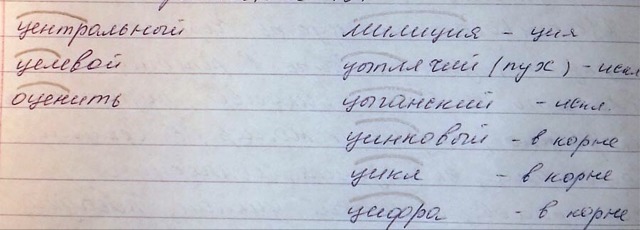 центральный милиция - ция
целевой цыплячий (пух) - искл
оценить цыганский - искл.
цинковый - в корне
цикл - в корне
цифра - в корне